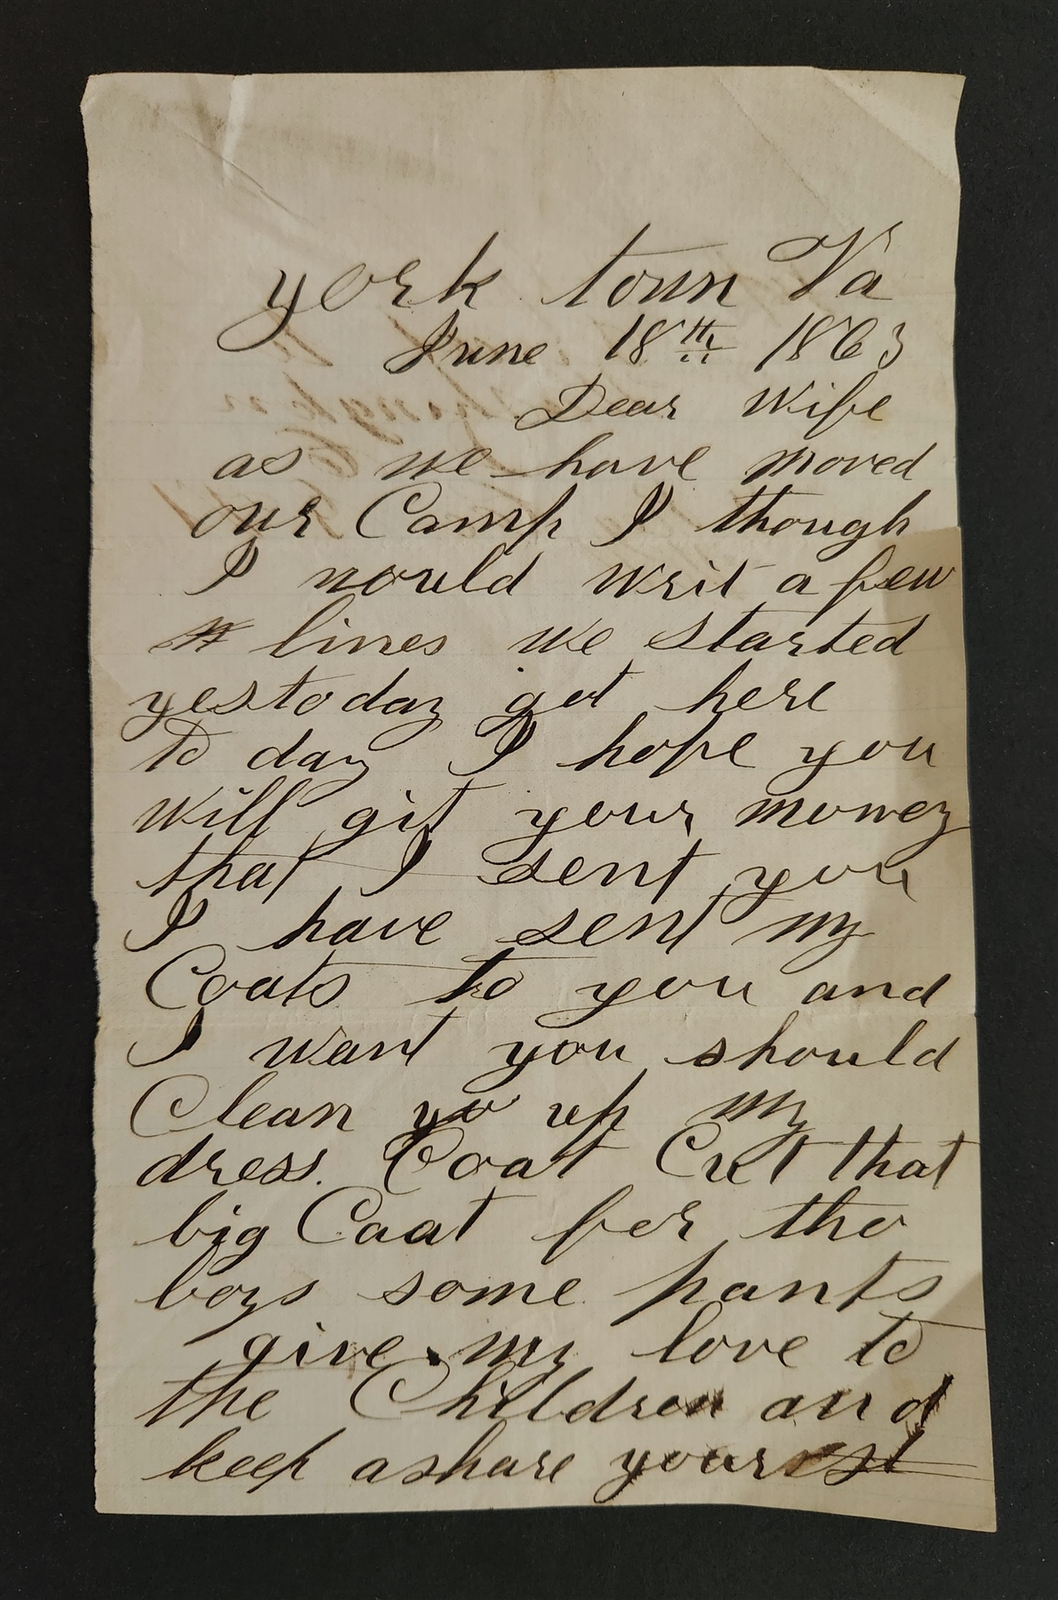 york town Va
June 18th 1863
Dear Wife
as we have moved
our Camp I though
I would writ a few
lines we started
yestoday got here
to day I hope you
will git your money
that I sent you
I have sent my
Coats to you and
I want you should
Clean yo up my
dress. Coat Cut that
big Coat for the
boys some pants
give my love to
the Children and
keep a share